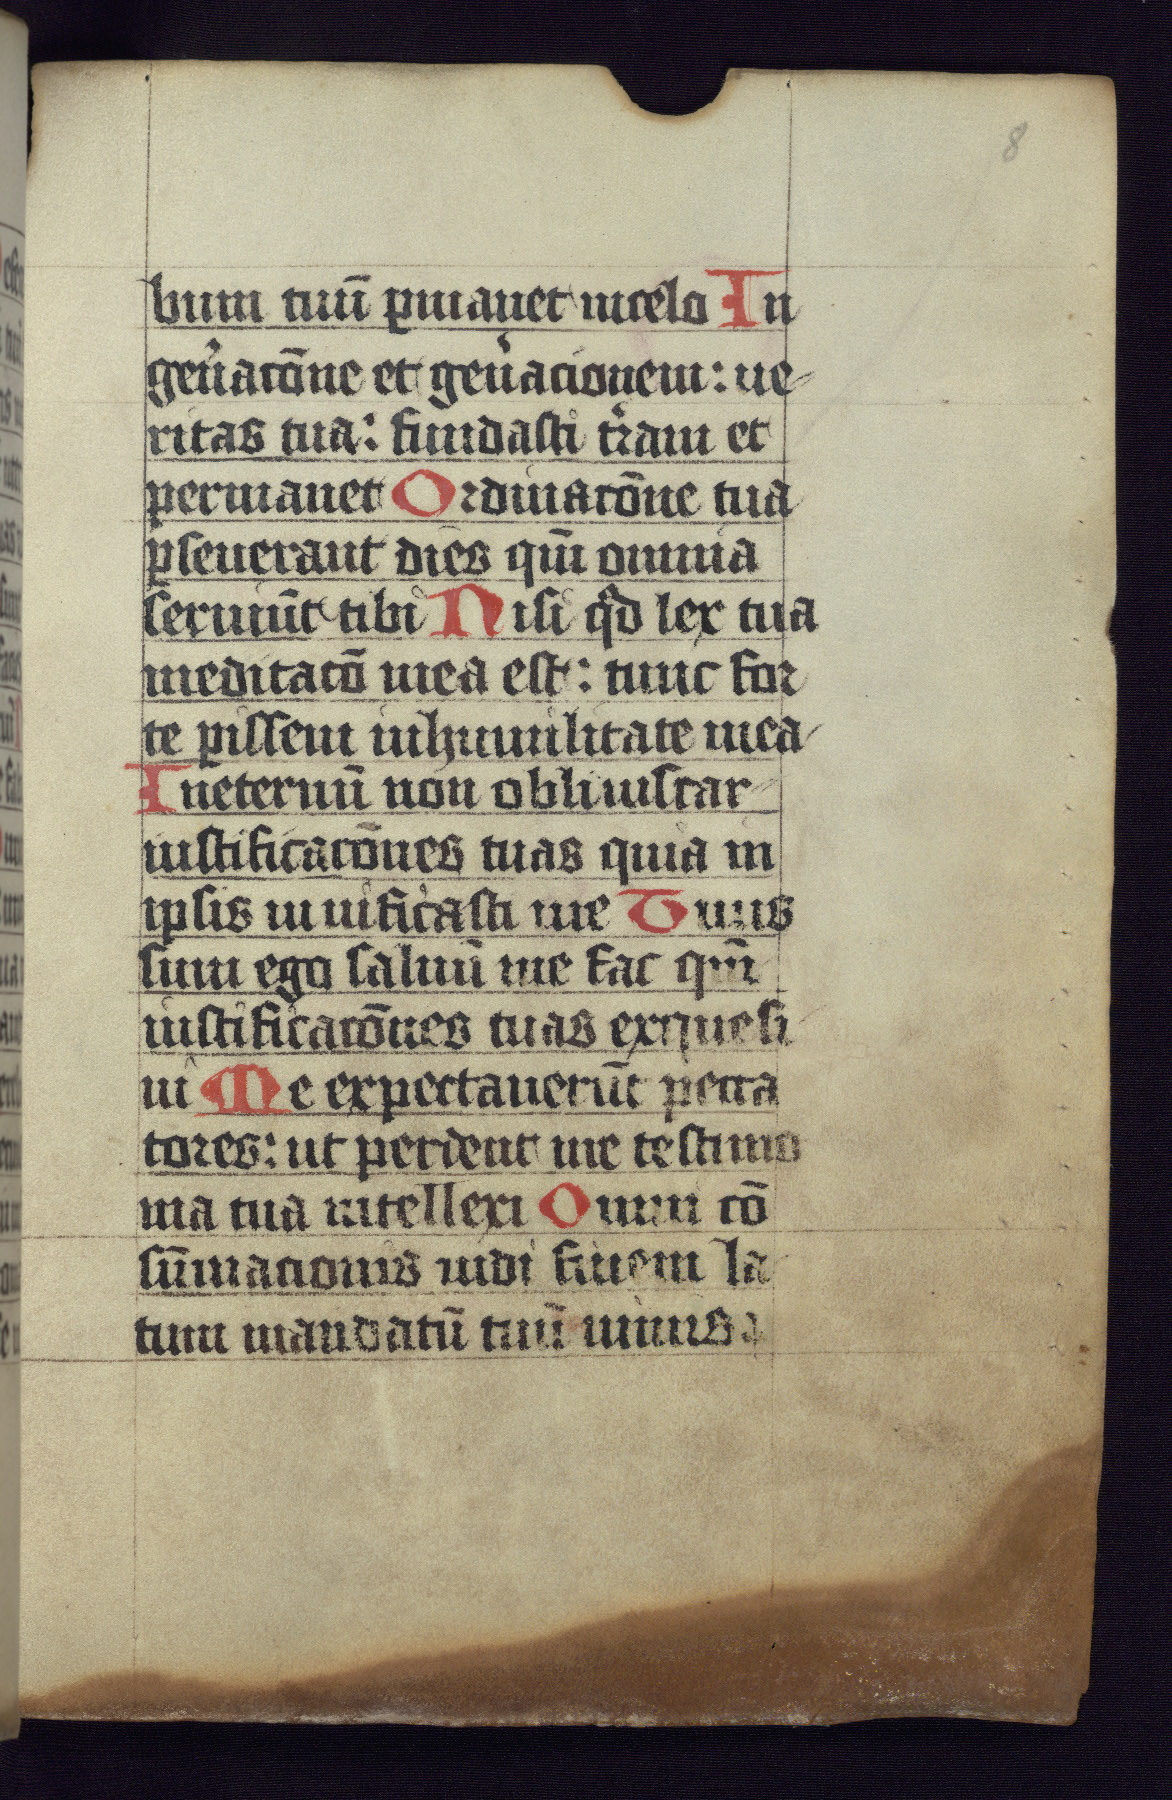 8
bum tuū ꝑmanet incelo In
gen̾acōne et gen̾acionem: ue
ritas tua: fundasti t̾ram et
permanet Ordinacōne tua
ꝑseuerant dies qm̄ omnia
seruiūt tibi Nisi qd̾ lex tua
meditacō mea est: tunc for
te ꝑissem inhumilitate mea
Ineternū non obliuiscar
iustificacōnes tuas quia in
ipsis uiuificasti me Tuus
sum ego saluū me fac qm̄
iustificacōnes tuas exquesi
ui Me expectauerūt pecca
tores: ut perdent me testimo
nia tua intellexi Omni cō
sūmacionis uidi finem la
tum mandatū tuū nimis